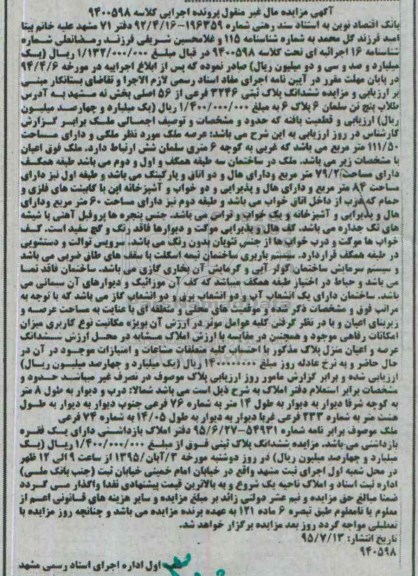 آگهی مزایده مال غیر منقول پرونده اجرایی کلاسه ۹۴۰۰۵۹۸
بانک اقتصاد نوین به استناد سند رهنی شماره ۱۹۶۳۵۹-۹۲/۴/۱۶ دفتر ۷۱ مشهد علیه خانم پیتا
امید فرزند گل محمد به شماره شناسنامه ۱۱۵ و غلامحسین شریفی فرزند رمضانعلی شماره
شناسنامه ۱۶ اجرائیه ای تحت کلاسه ۹۴۰۰۵۹۸ در قبال مبلغ ۱/۱۳۲/۰۰۰/۰۰۰ ریال (یک
میلیارد و صد و سی و دو میلیون ریال) صادر نموده که پس از ابلاغ اجراییه در مورخه ۹۴/۴/۶
در پایان مهلت مقرر در آیین نامه اجرای مفاد اسناد رسمی لازم الاجرا و تقاضای بستانکار مبنی
بر ارزیابی و مزایده ششدانگ پلاک ثبتی ۳۲۴۶ فرعی از ۵۶ اصلی بخش نه مشهد به آدرس
طلاب پنج تن سلمان ۶ پلاک ۶ به مبلغ ۱/۴۰۰/۰۰۰/۰۰۰ ریال (یک میلیارد و چهارصد میلیون
ریال) ارزیابی و قطعیت یافته که حدود و مشخصات و توصیف اجمالی ملک برابر گزارش
کارشناس در روز ارزیابی به این شرح می باشد: عرصه ملک مورد نظر ملکی و دارای مساحت
۱۱۱/۵۰ متر مربع می باشد که غربی به کوچه ۶ متری سلمان شش ارتباط دارد. ملک فوق اعیان
با مشخصات زیر می باشد. ملک در ساختمان سه طبقه همکف و اول و دوم می باشد طبقه همکف
دارای مساحت ۷۹/۲ متر مربع ودارای هال و دو اتاق و پارکینگ می باشد و طبقه اول نیز دارای
مساحت ۸۴ متر مربع و دارای هال و پذیرایی و دو خواب و آشپزخانه اپن با کابینت های فلزی و
حمام که درب از داخل اتاق خواب می باشد و طبقه دوم نیز دارای مساحت ۶۰ متر مربع ودارای
هال و پذیرایی و آشپزخانه و یک خواب و تراس می باشد. جنس پنجره ها پروفیل آهنی با شیشه
های تک جداره می باشد. کف هال و پذیرایی موکت و دیوارها فاقد رنگ و گچ سفید است. کف
خواب ها موکت و درب خواب ها از جنس نئوپان بدون رنگ می باشد. سرویس توالت و دستشویی
در طبقه همکف قرار دارد. سیستم باربری ساختمان نیمه اسکلت با سقف های طاق ضربی می باشد
و سیستم سرمایش ساختمان کولر آبی و گرمایش آن بخاری گازی می باشد. ساختمان فاقد نما
می باشد و حیاط در اختیار طبقه همکف میباشد که کف آن موزائیک و دیوارهای آن سیمانی می
باشد. ساختمان دارای یک انشعاب آب و دو انشعاب برق و دو انشعاب گاز می باشد که با توجه به
مراتب فوق و مشخصات ذکر شده و موقعیت های محلی و منطقه ای با عنایت به مساحت عرصه و
زیربنای اعیان و با در نظر گرفتن کلیه عوامل موثر در ارزش آن بویژه مکانیت نوع کاربری میزان
امکانات رفاهی موجود و همچنین در مقایسه با ارزش املاک مشابه در محل ارزش ششدانگ
عرصه و اعیان منزل پلاک مذکور با احتساب کلیه متعلقات مناعات و امتیازات موجود در آن در
حال حاضر و به نرخ عادله روز مبلغ ۱۴۰۰۰۰۰۰۰۰ ریال (یک میلیارد و چهارصد میلیون ریال)
ارزیابی شده و برابر گزارش مامور روز ارزیابی پلاک موصوف در تصرف غیر میباشد حدود و
مشخصات برابر استعلام دفتر املاک به شرح ذیل است می باشد شمالا: درب و دیوار به طول ۸ متر
به کوچه شرقا دیوار به دیوار به طول ۱۴ متر به شماره ۷۶ فرعی جنوب دیوار به دیوار به طول
هشت متر به شماره ۳۳۳ فرعی غربا دیوار به دیوار به طول ۱۴/۰۵ به شماره ۷۴ فرعی
ملک موصوف برابر نامه شماره ۵۴۹۳۱-۹۵/۶/۲۷ دفتر املاک بازداشتی دارای یک فقره
بازداشتی می باشد. مزایده ششدانگ پلاک ثبتی فوق از مبلغ ۱/۴۰۰/۰۰۰/۰۰۰ ریال (یک
میلیارد و چهارصد میلیون ریال) در روز دوشنبه مورخه ۳/آبان/۱۳۹۵ از ساعت ۹ الی ۱۲ ظهر
در محل شعبه اول اجرای ثبت مشهد واقع در خیابان امام خمینی خیابان ثبت (جنب بانک ملی)
اداره ثبت اسناد و املاک ناحیه یک شروع و به بالاترین قیمت پیشنهادی نقدا واگذار می گردد
ضمنا مبالغ حق مزایده و نیم عشر دولتی زائد بر مبلغ مزایده و سایر هزینه های قانونی اعم از
معلوم یا نامعلوم طبق تبصره ۶ ماده ۱۲۱ به عهده برنده مزایده می باشد و چنانچه روز مزایده با
تعطیلی مواجه گردد روز بعد مزایده برگزار خواهد شد.
تاریخ انتشار: ۹۵/۷/۱۳
۹۴۰۵۹۸
اول اداره اجرای اسناد رسمی مشهد